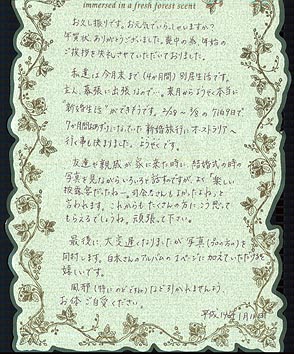 immersed in a fresh forest scent
お久し振りです。お元気でいらっしゃいますか?
年賀状ありがとうございました。喪中の為、年始の
ご挨拶を失礼させていただいておりました。
私達は今月末まで(4か月間)別居生活です。
主人、幕張に出張なので…。来月からようやく本当に
"新婚生活"ができそうです。
7か月間
新婚旅行にオーストラリアへ
行く事も決まりました。ようやくです。
友達や親戚が家に来た時に結婚式の時の
写真を見ながらいろいろと話すのですが、よく「楽しい
披露宴だったね―。司会者さんもよかったよね」と
言われます。これからもたくさんの方にこう思って
もらえるでしょうね。頑張って下さい。
最後に、大変遅くなりましたが写真
同封します。
のアルバムの1ページに加えていただけると
嬉しいです。
風邪(特にのど
)など引かれませんよう
お体ご自愛ください。
平成
1月